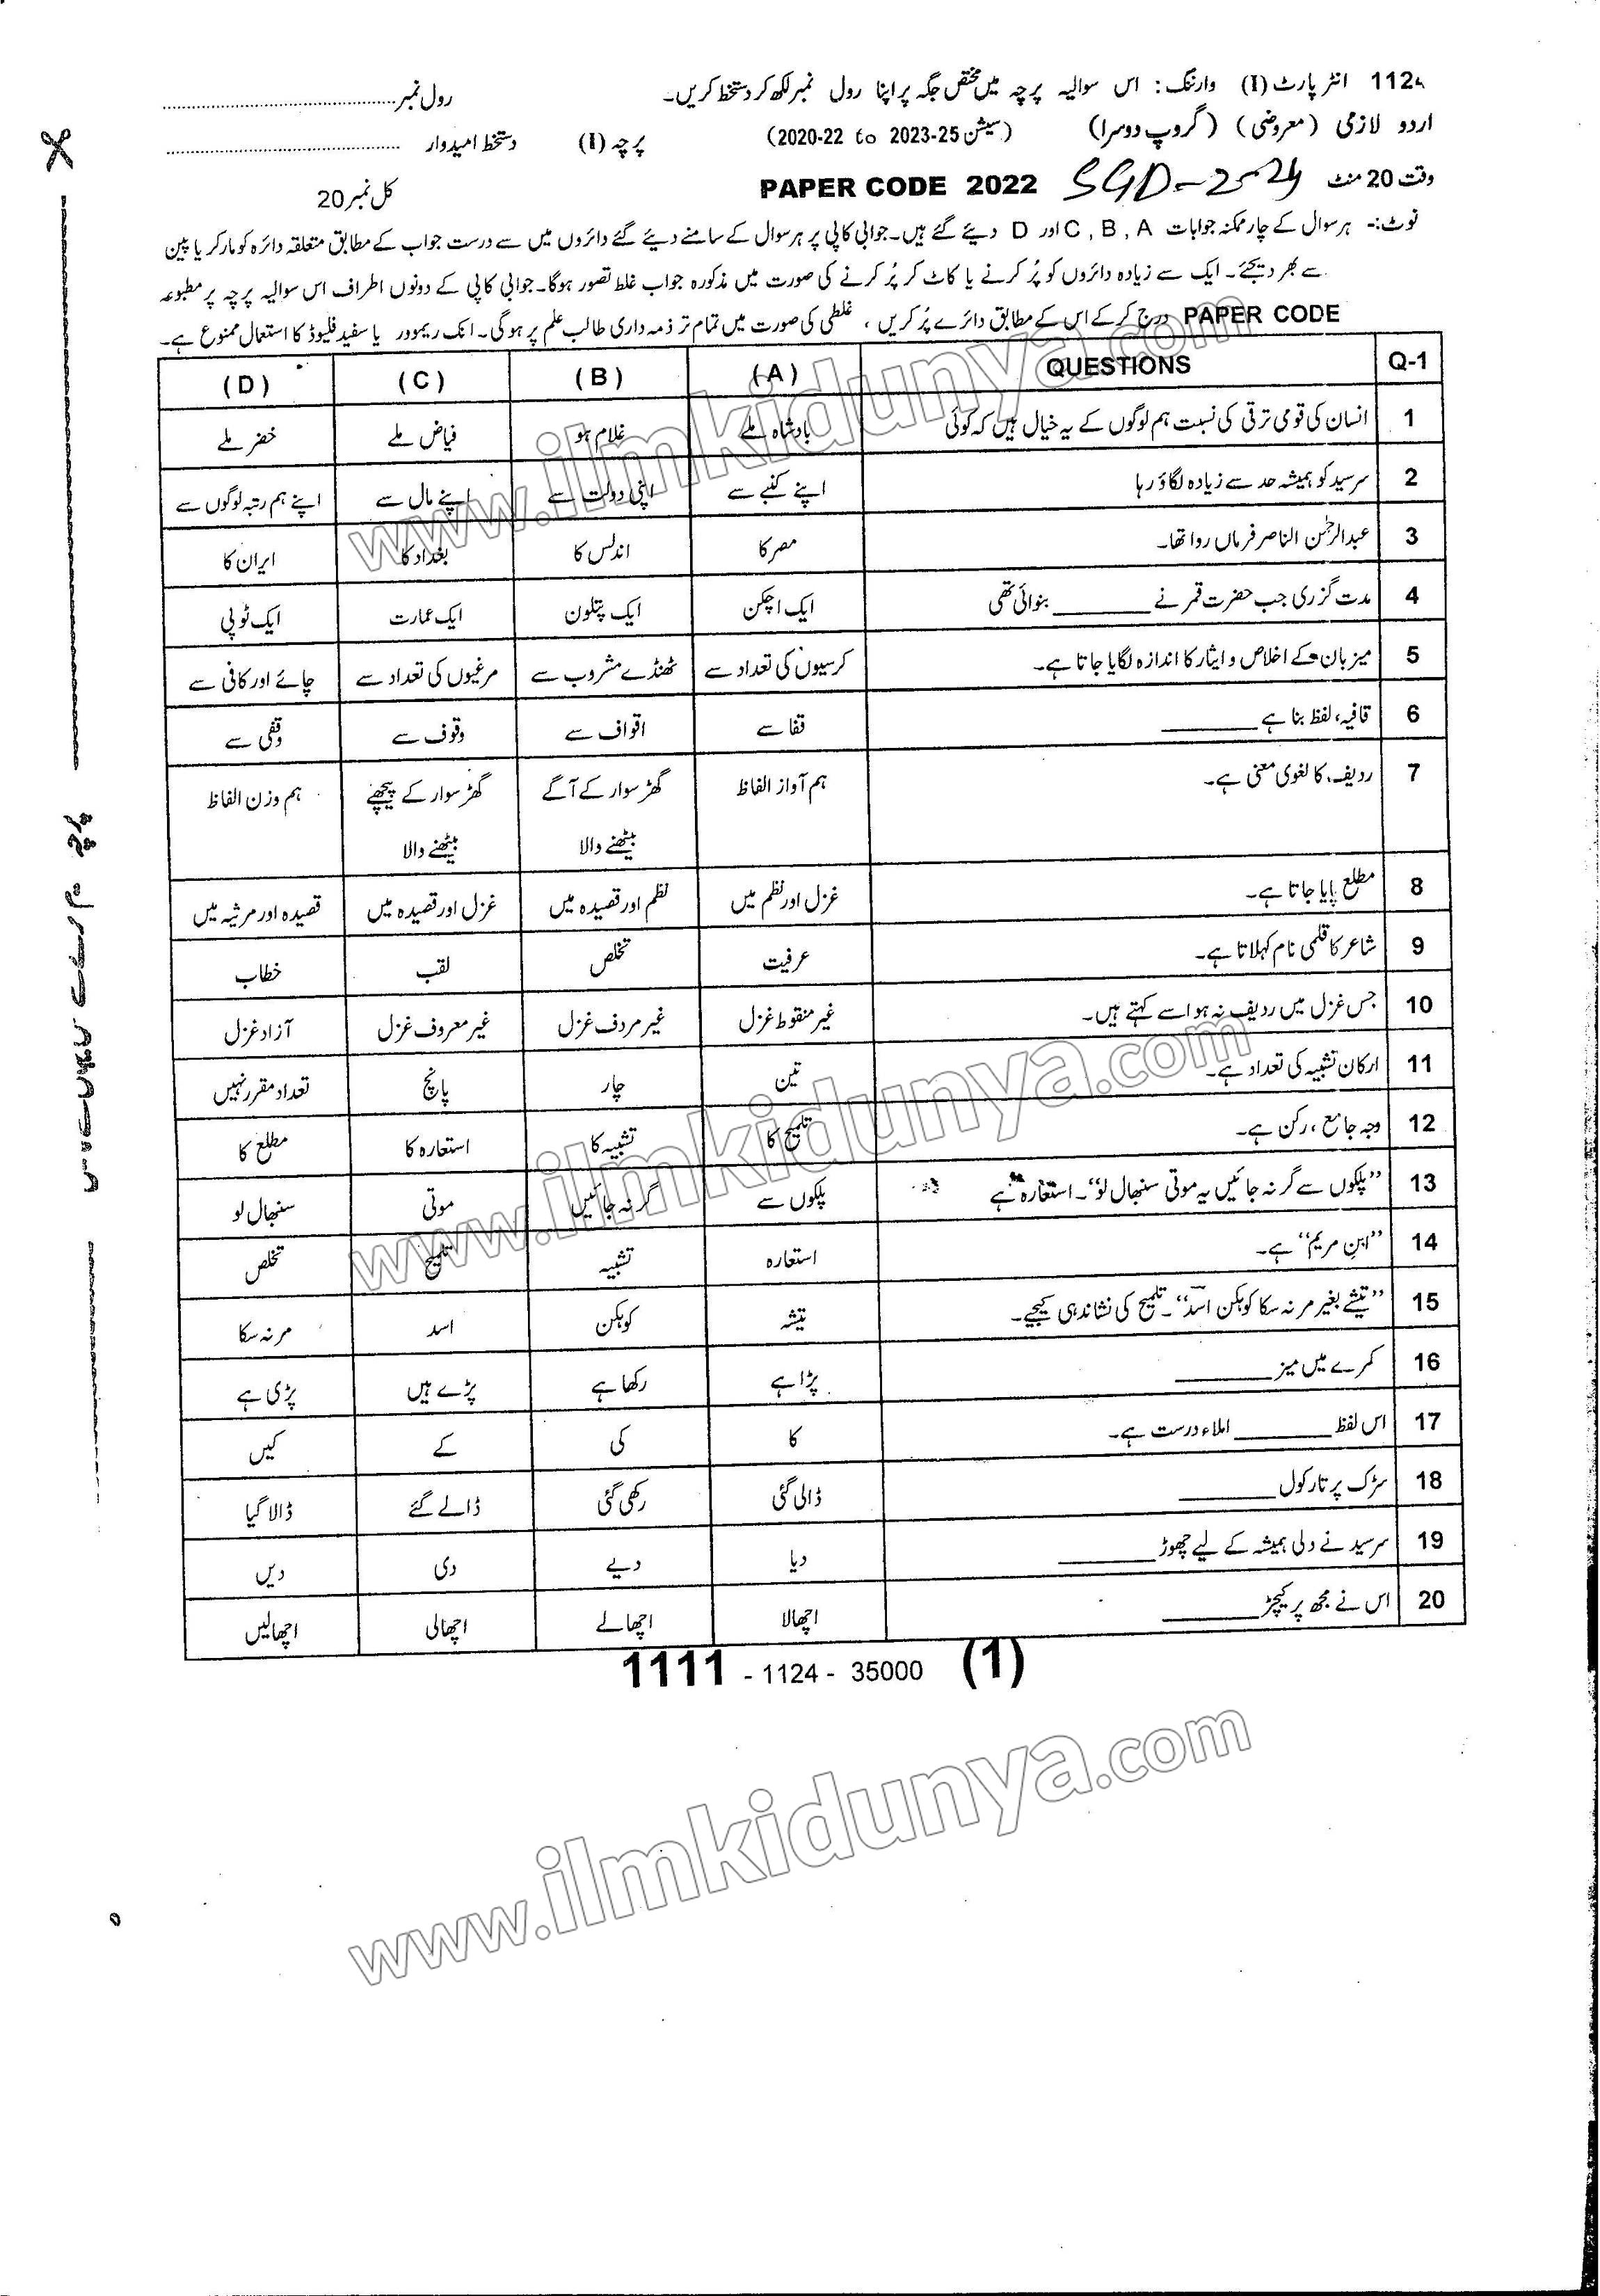 1124 انٹر پارٹ (I) وارننگ: اس سوالیہ پرچہ میں مختص جگہ پر اپنا رول نمبر لکھ کر دستخط کریں۔ رول نمبر
اردو لازمی (معروضی) (گروپ دوسرا) (سیشن 2020-22 to 2023-25) پرچہ (I) دستخط امیدوار
وقت 20 منٹ SGD-2024 PAPER CODE 2022 کل نمبر 20
نوٹ:- ہر سوال کے چار ممکنہ جوابات C , B , A اور D دیئے گئے ہیں۔ جوابی کاپی پر ہر سوال کے سامنے دیئے گئے دائروں میں سے درست جواب کے مطابق متعلقہ دائرہ کو مارکر یا پین
سے بھر دیجئے۔ ایک سے زیادہ دائروں کو پُر کرنے یا کاٹ کر پُر کرنے کی صورت میں مذکورہ جواب غلط تصور ہوگا۔ جوابی کاپی کے دونوں اطراف اس سوالیہ پرچہ پر مطبوعہ
PAPER CODE درج کر کے اس کے مطابق دائرے پُر کریں ، غلطی کی صورت میں تمام تر ذمہ داری طالب علم پر ہوگی۔ انک ریموور یا سفید فلیوڈ کا استعمال ممنوع ہے۔
Q-1 QUESTIONS (A) (B) (C) (D)
1 انسان کی قومی ترقی کی نسبت ہم لوگوں کے یہ خیال ہیں کہ کوئی بادشاہ ملے غلام ہو فیاض ملے خضر ملے
2 سرسید کو ہمیشہ حد سے زیادہ لگاؤ رہا اپنے کنبے سے اپنی دولت سے اپنے مال سے اپنے ہم رتبہ لوگوں سے
3 عبدالرحمٰن الناصر فرماں روا تھا۔ مصر کا اندلس کا بغداد کا ایران کا
4 مدت گزری جب حضرت قمر نے ________ بنوائی تھی ایک اچکن ایک پتلون ایک عمارت ایک ٹوپی
5 میزبان کے اخلاص و ایثار کا اندازہ لگایا جاتا ہے۔ کرسیوں کی تعداد سے ٹھنڈے مشروب سے مرغیوں کی تعداد سے چائے اور کافی سے
6 قافیہ، لفظ بنا ہے ________ قفا سے اقواف سے وقوف سے وقفی سے
7 ردیف، کا لغوی معنی ہے۔ ہم آواز الفاظ گھڑ سوار کے آگے بیٹھنے والا گھڑ سوار کے پیچھے بیٹھنے والا ہم وزن الفاظ
8 مطلع پایا جاتا ہے۔ غزل اور نظم میں نظم اور قصیدہ میں غزل اور قصیدہ میں قصیدہ اور مرثیہ میں
9 شاعر کا قلمی نام کہلاتا ہے۔ عرفیت تخلص لقب خطاب
10 جس غزل میں ردیف نہ ہو اسے کہتے ہیں۔ غیر منقوط غزل غیر مردف غزل غیر معروف غزل آزاد غزل
11 ارکان تشبیہ کی تعداد ہے۔ تین چار پانچ تعداد مقرر نہیں
12 وجہ جامع ، رکن ہے۔ تلمیح کا تشبیہ کا استعارہ کا مطلع کا
13 ”پلکوں سے گر نہ جائیں یہ موتی سنبھال لو“۔ استعارہ ہے پلکوں سے گر نہ جائیں موتی سنبھال لو
14 ”ابنِ مریم“ ہے۔ استعارہ تشبیہ تلمیح تخلص
15 ”تیشے بغیر مر نہ سکا کوہکن اسد“۔ تلمیح کی نشاندہی کیجیے۔ تیشہ کوہکن اسد مر نہ سکا
16 کمرے میں میز ________ پڑا ہے رکھا ہے پڑے ہیں پڑی ہے
17 اس لفظ ________ املاء درست ہے۔ کا کی کے کیں
18 سڑک پر تارکول ________ ڈالی گئی رکھی گئی ڈالے گئے ڈالا گیا
19 سرسید نے دلی ہمیشہ کے لیے چھوڑ ________ دیا دیے دی دیں
20 اس نے مجھ پر کیچڑ ________ اچھالا اچھالے اچھالی اچھالیں
1111 - 1124 - 35000 (1)
www.ilmkidunya.com
www.ilmkidunya.com
www.ilmkidunya.com